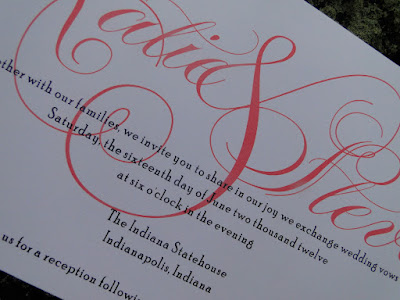 &
ether with our families, we invite you to share in our joy we exchange wedding vows
Saturday, the sixteenth day of June two thousand twelve
at six o'clock in the evening
The Indiana Statehouse
Indianapolis, Indiana
us for a reception followin